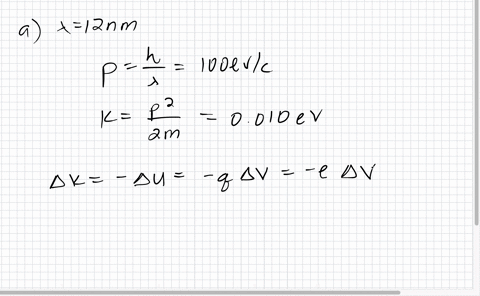 a) λ=12nm
p = h/λ = 100eV/c
K = p²/2m = 0.010 eV
ΔK = -ΔU = -q ΔV = -e ΔV